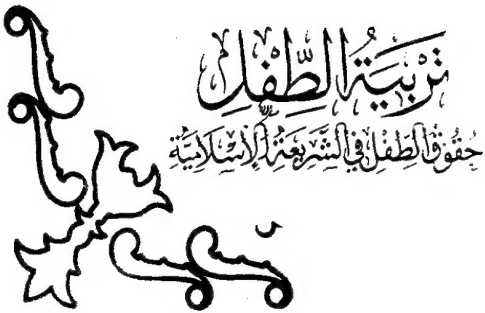 تَرْبِيَةُ الطِّفْلِ
حُقُوقُ الطِّفْلِ فِي الشَّرِيعَةِ الْإِسْلَامِيَّةِ